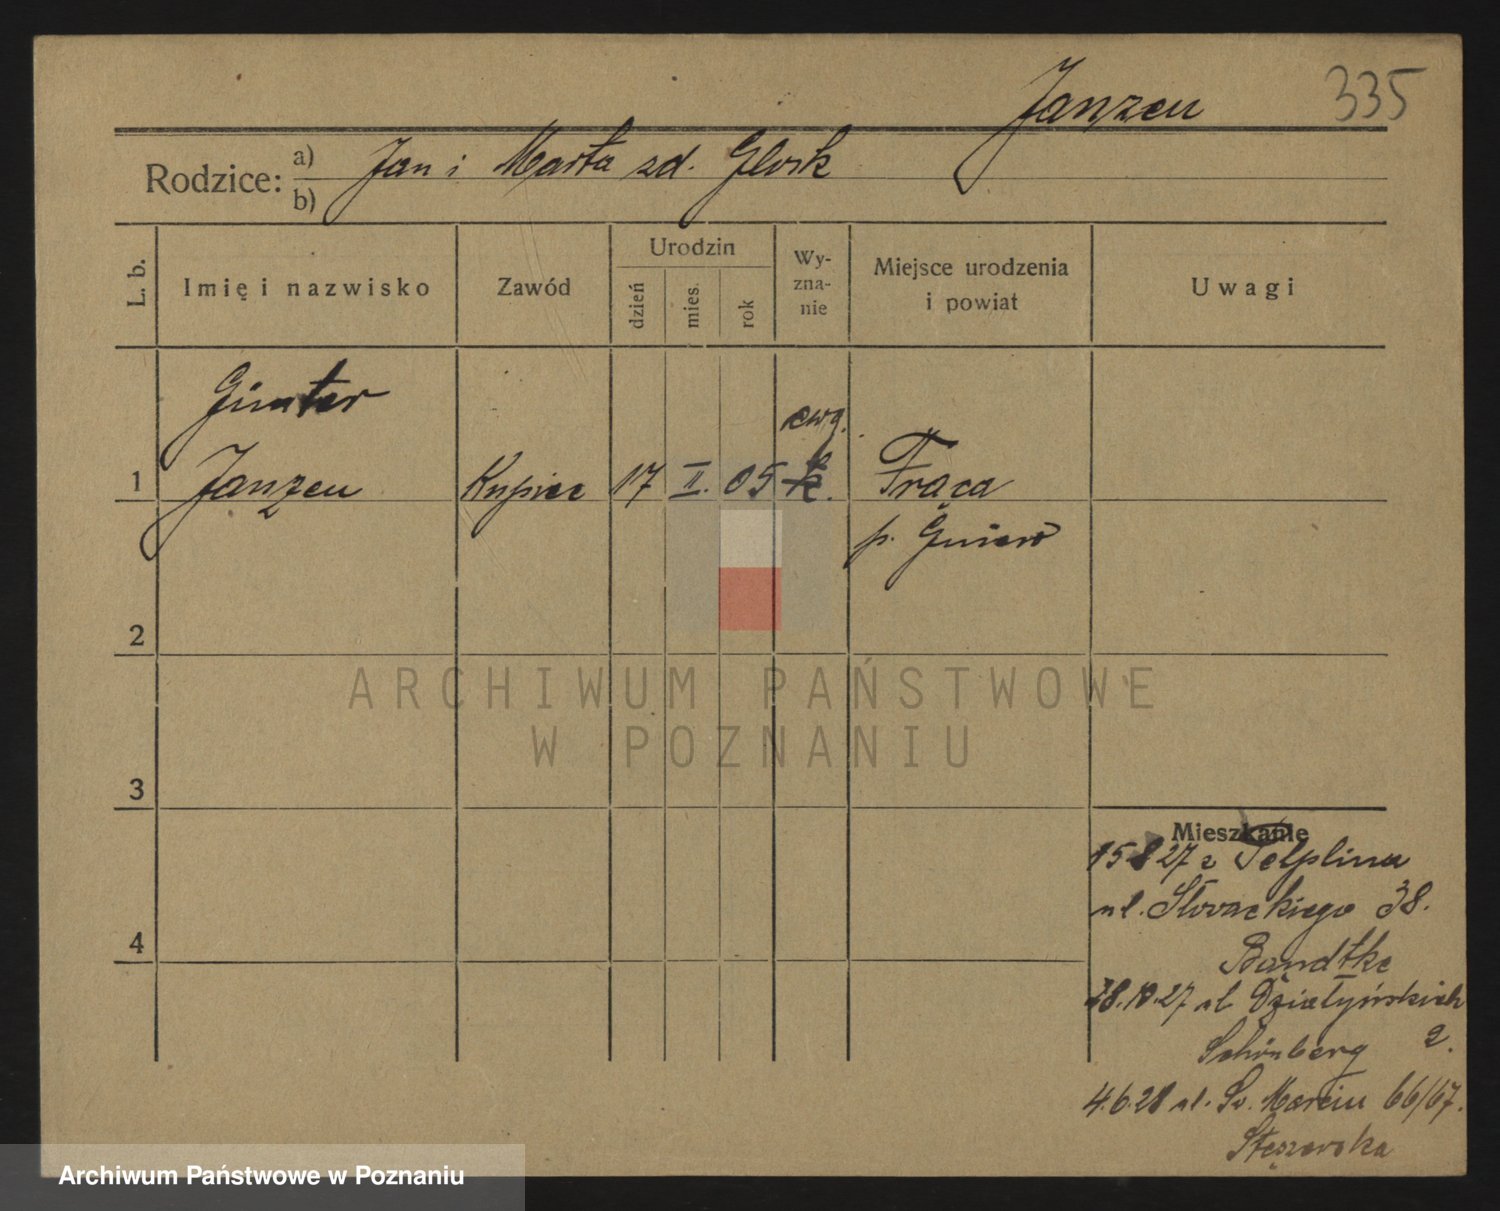 335
Janzen
Rodzice: a) Jan i Marta zd. Glock
b)
L. b.
Imię i nazwisko
Zawód
Urodzin
dzień
mies.
rok
Wy-
zna-
nie
Miejsce urodzenia
i powiat
Uwagi
Günter
ewg.
1 Janzen Kupiec 17 II. 05 k. Frąca
p. Gniew
2
ARCHIWUM PAŃSTWOWE
W POZNANIU
3
Mieszkanie
15 8 27 z Pelplina
ul. Słowackiego 38.
Bandtke
28.10.27 ul. Działyńskich
Schönberg 2.
4
4.6.28 ul. Św. Marcin 66/67.
Stęszewska
Archiwum Państwowe w Poznaniu